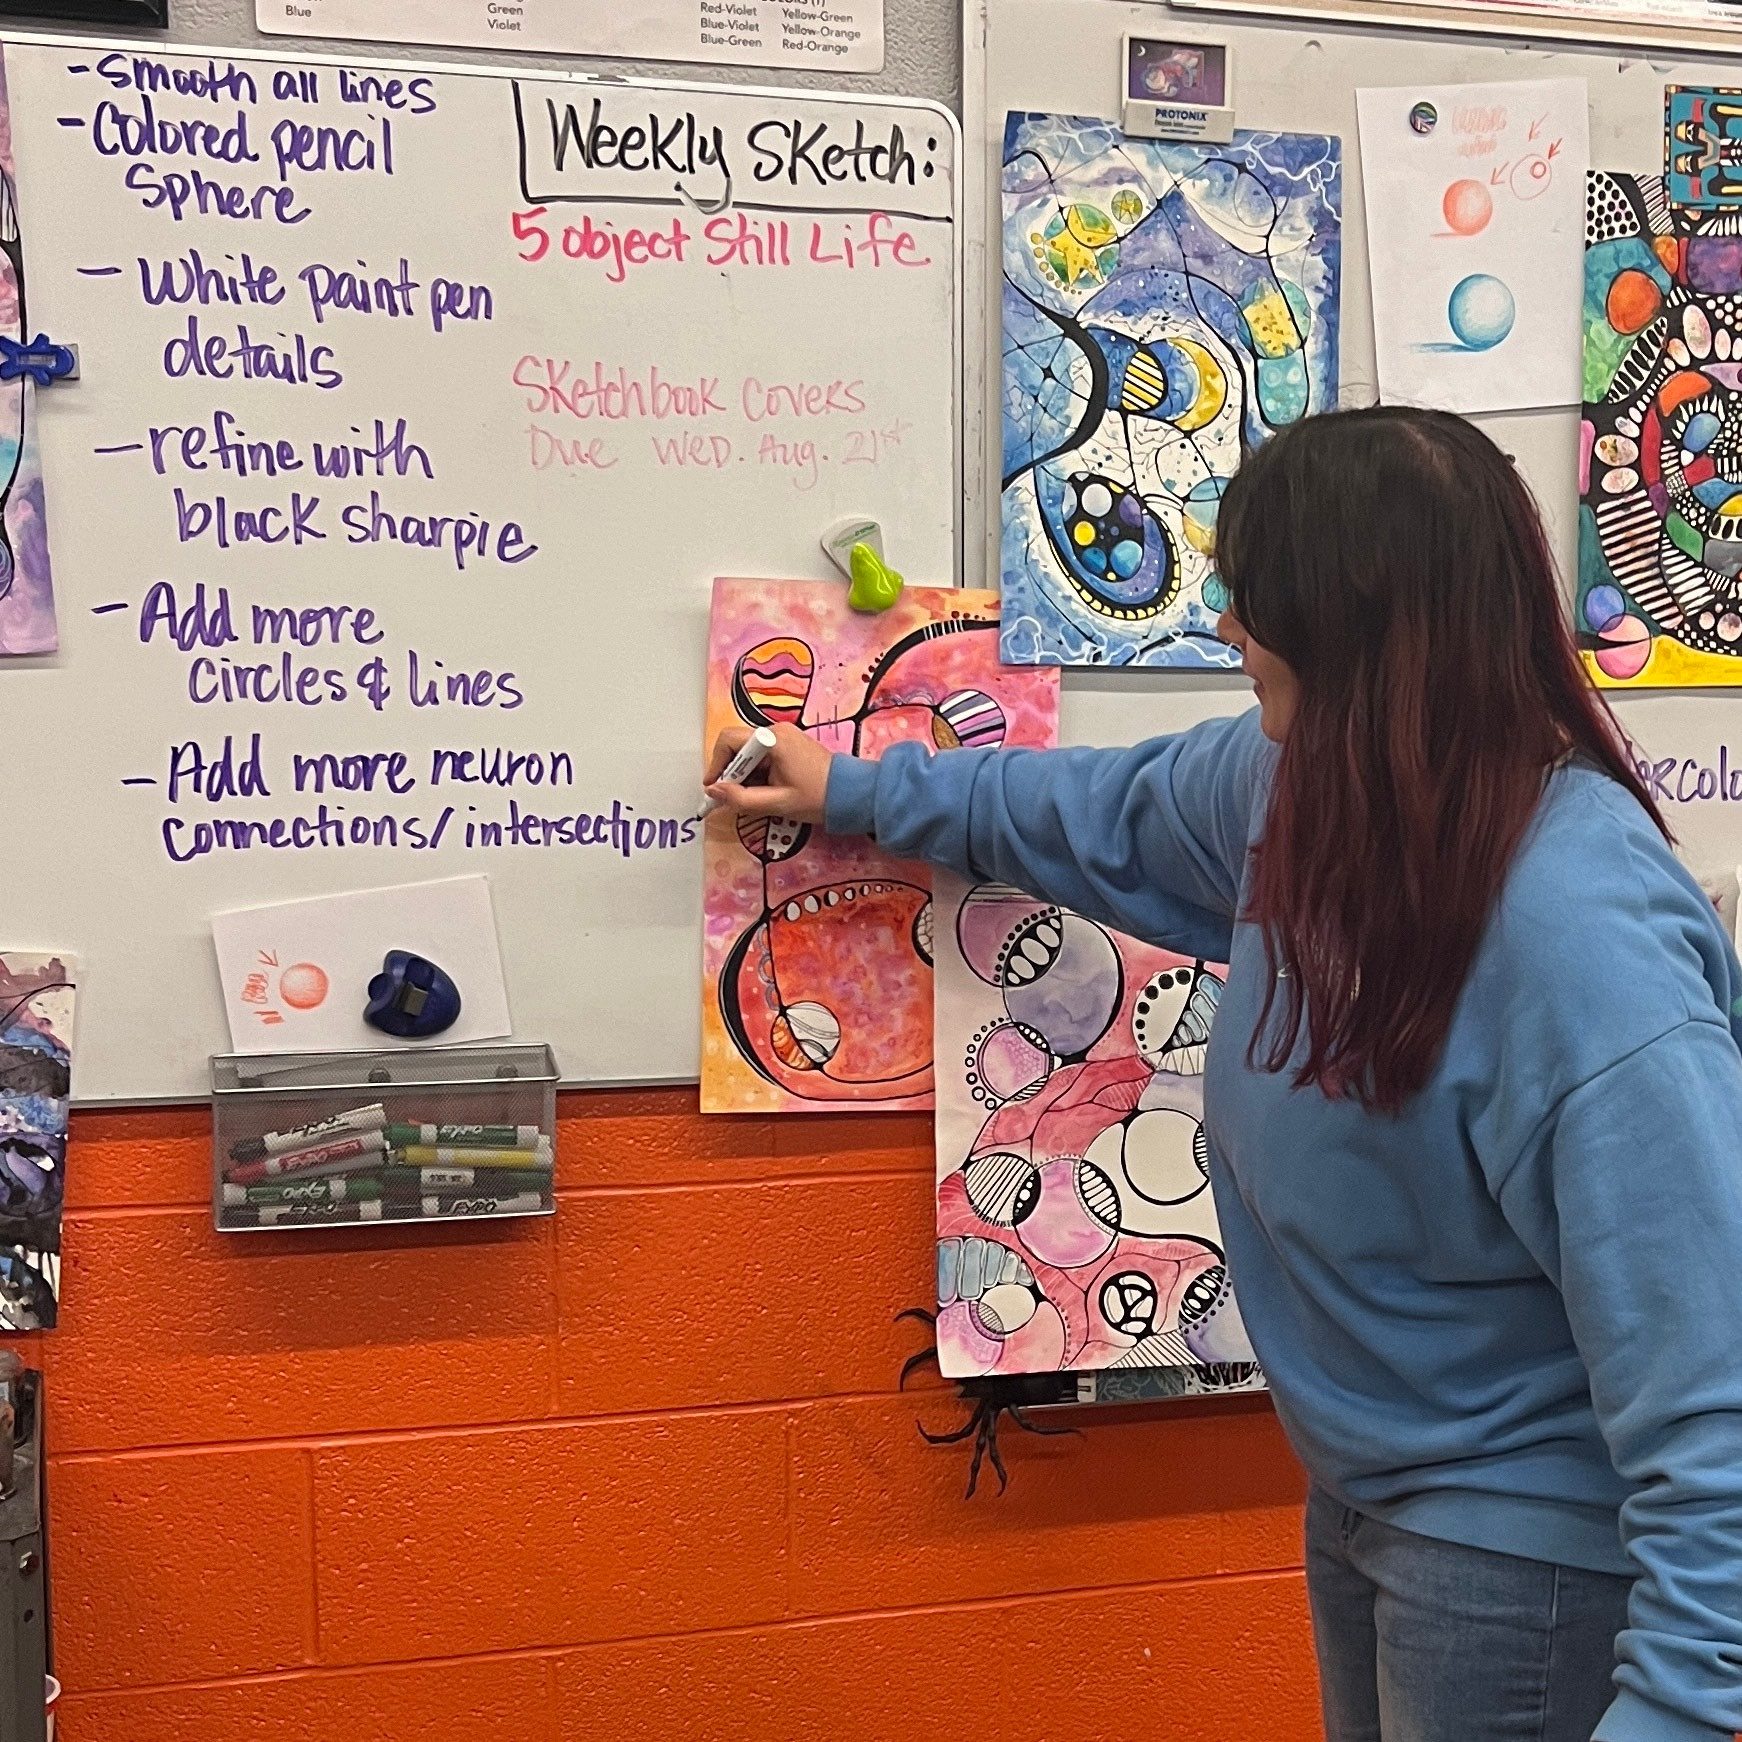 Blue
Green
Violet
Red-Violet Yellow-Green
Blue-Violet Yellow-Orange
Blue-Green Red-Orange
- Smooth all lines
- Colored pencil
Sphere
- White paint pen
details
- refine with
black sharpie
- Add more
circles & lines
- Add more neuron
connections/intersections
Weekly Sketch:
5 object Still Life
Sketchbook Covers
Due Wed. Aug. 21st
PROTONIX
EXPO
EXPO